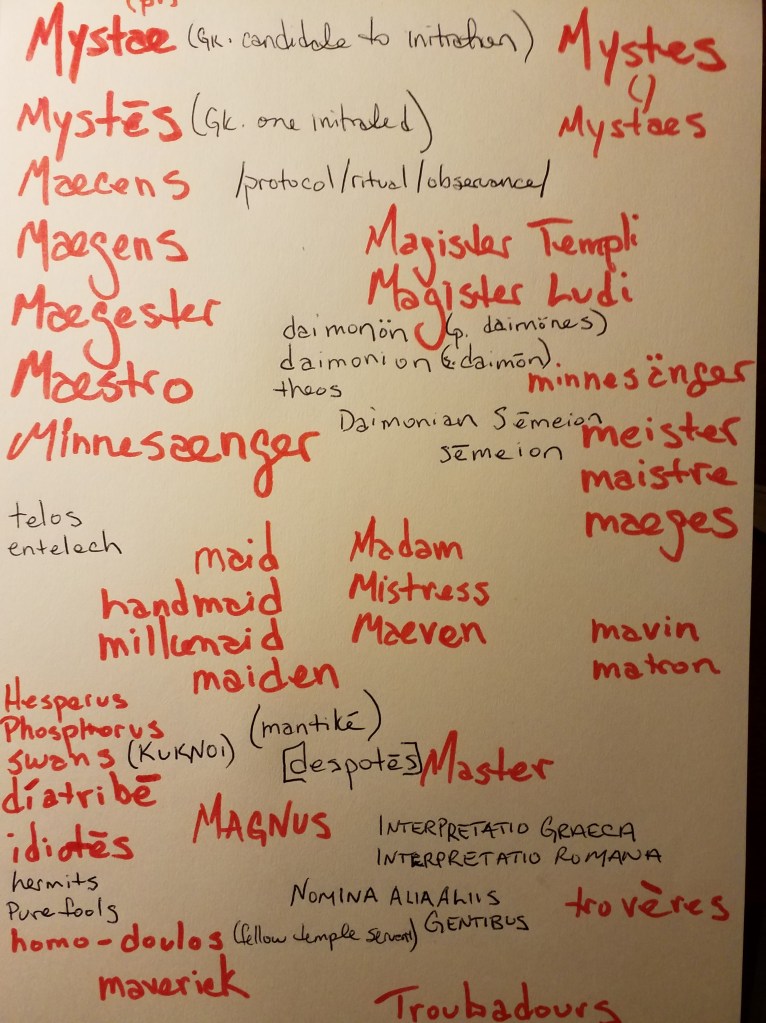 (pl)
Mystae (Gk. candidate to initiation) Mystes
()
Mystēs (Gk. one initiated) Mystaes
Maecens /protocol/ritual/observance/
Maegens Magister Templi
Maegester Magister Ludi
daimonön (p. daimönes)
Maestro daimonion (s. daimōn) minnesänger
theos
Minnesaenger Daimonian Sēmeion meister
sēmeion maistre
telos maeges
entelech
maid Madam
handmaid Mistress
milkmaid Maeven mavin
maiden matron
Hesperus
Phosphorus (mantikē)
swans (KUKNOI) [despotēs] Master
díatribē
MAGNUS INTERPRETATIO GRAECA
idiotēs INTERPRETATIO ROMANA
hermits
Pure fools NOMINA ALIA ALIIS trovères
GENTIBUS
homo-doulos (fellow temple servant)
maverick
Troubadours